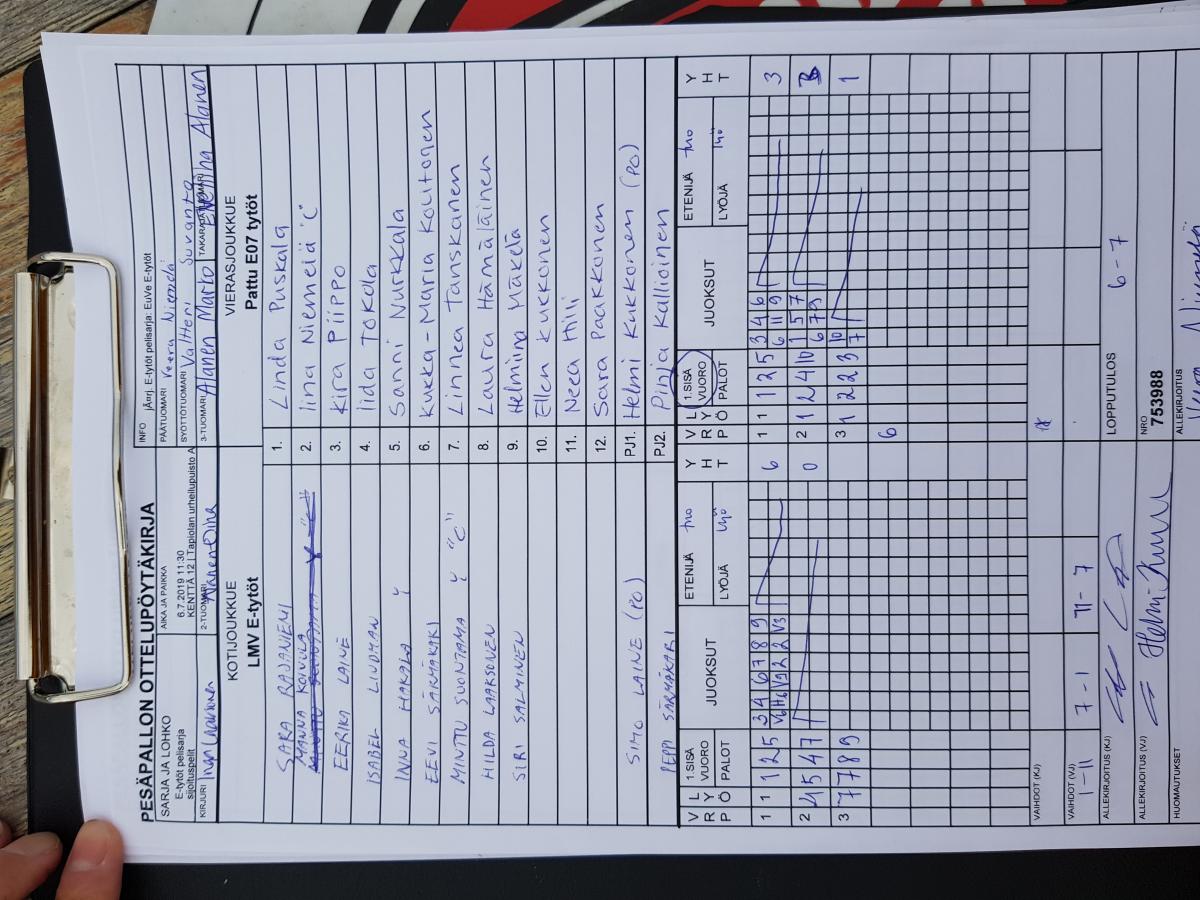 PESÄPALLON OTTELUPÖYTÄKIRJA
SARJA JA LOHKO
E-tytöt pelisarja
sijoituspelit
AIKA JA PAIKKA
6.7.2019 11:30
KENTTÄ 12 | Tapiolan urheilupuisto A
INFO
jÄnrj. E-tytöt pelisarja: EuVe E-tytöt
PÄÄTUOMARI Veera Niemelä
SYÖTTÖTUOMARI Valtteri Suvanto
KIRJURI
2-TUOMARI
3-TUOMARI Alanen Marko
TAKARAJATUOMARI Eveliina Alanen
KOTIJOUKKUE
LMV E-tytöt
VIERASJOUKKUE
Pattu E07 tytöt
SARA RAJANIEMI 1. Linda Puskala
MANNA KOIVULA 2. Iina Niemelä "C"
EERIKA LAINE 3. Kira Piippo
ISABEL LINDMAN 4. Iida Tokola
INNA HAKALA Y 5. Sanni Nurkkala
EEVI SÄRMÄKARI 6. Kukka-Maria Koutonen
MINTTU SUONTAMA Y "C" 7. Linnea Tanskanen
HILDA LAAKSONEN 8. Laura Hämäläinen
SIRI SALMINEN 9. Helmiina Mäkelä
10. Ellen Kukkonen
11. Neea Hili
12. Sara Paakkonen
SIMO LAINE (PO) PJ1. Helmi Kukkonen (PO)
PEPPI SÄRMÄKARI PJ2. Pinja Kallioinen
V R L Y Ö P 1.SISÄ VUORO PALOT JUOKSUT ETENIJÄ tuo LYÖJÄ lyö Y H T
V R L Y Ö P 1.SISÄ VUORO PALOT JUOKSUT ETENIJÄ tuo LYÖJÄ lyö Y H T
1 1 1 2 5 3 4 6 7 8 9 6
V6 H6 V9 2 2 V3
1 1 1 2 5 3 4 6 3
6 11 9
2 4 5 4 7 0
2 1 2 4 10 1 5 7 3
6 7 9
3 7 7 8 9
3 1 2 2 3 10 1
7
6
VAIHDOT (KJ)
VAIHDOT (VJ)
1-11 7-1 11-7
ALLEKIRJOITUS (KJ)
LOPPUTULOS
6-7
ALLEKIRJOITUS (VJ)
NRO
753988
HUOMAUTUKSET
ALLEKIRJOITUS